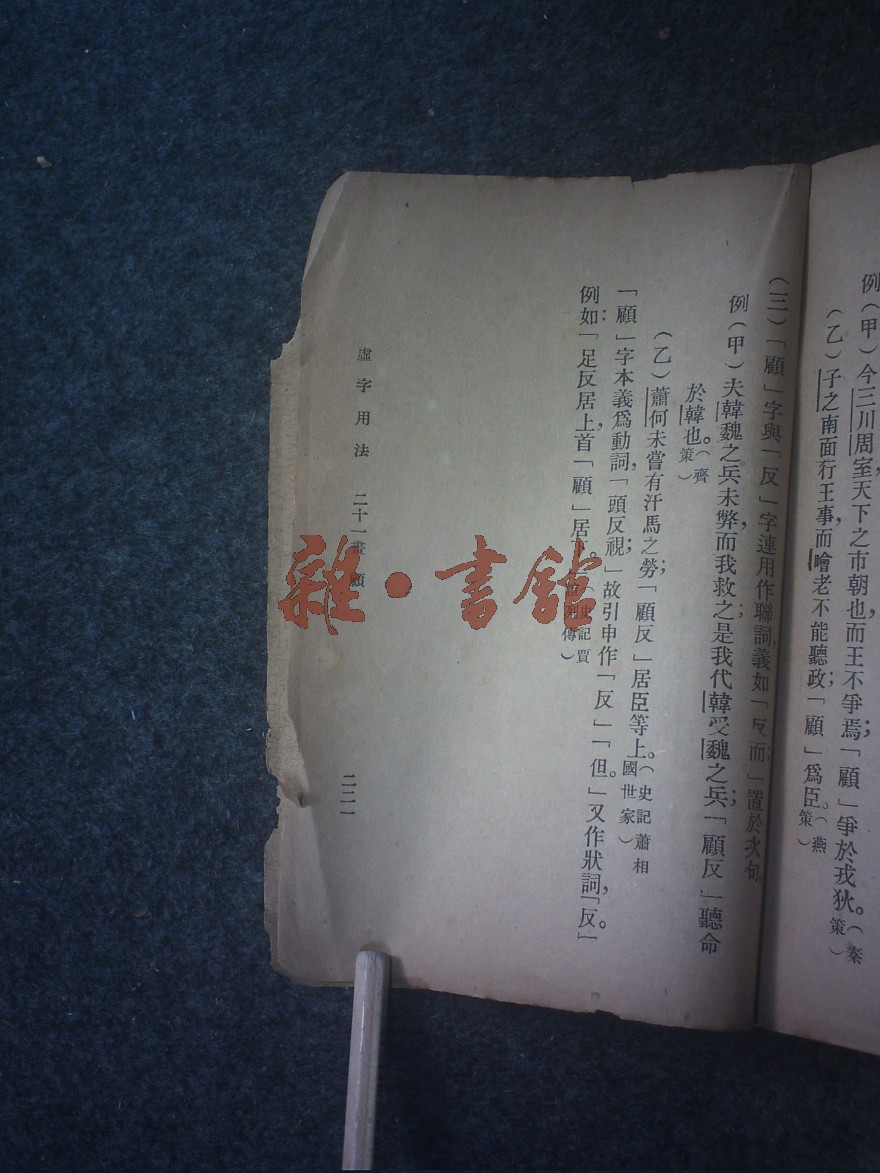 例（甲）今三川周室，天下之市朝也，而王不爭焉；「顧」爭於戎狄。（秦策）
（乙）子之南面行王事，而噲老不能聽政；「顧」爲臣。（燕策）
（三）「顧」字與「反」字連用作聯詞，義如「反而；」置於次句。
例（甲）夫韓魏之兵未弊，而我救之；是我代韓受魏之兵；「顧反」聽命
於韓也。（齊策）
（乙）蕭何未嘗有汗馬之勞；「顧反」居臣等上。（史記蕭相國世家）
「顧」字本義爲動詞，「頭反視；」故引申作「反」「但。」又作狀詞，「反。」
例如：「足反居上，首「顧」居下。（史記賈列傳）
虛字用法　二十一畫　顧
二二一
雜·書館